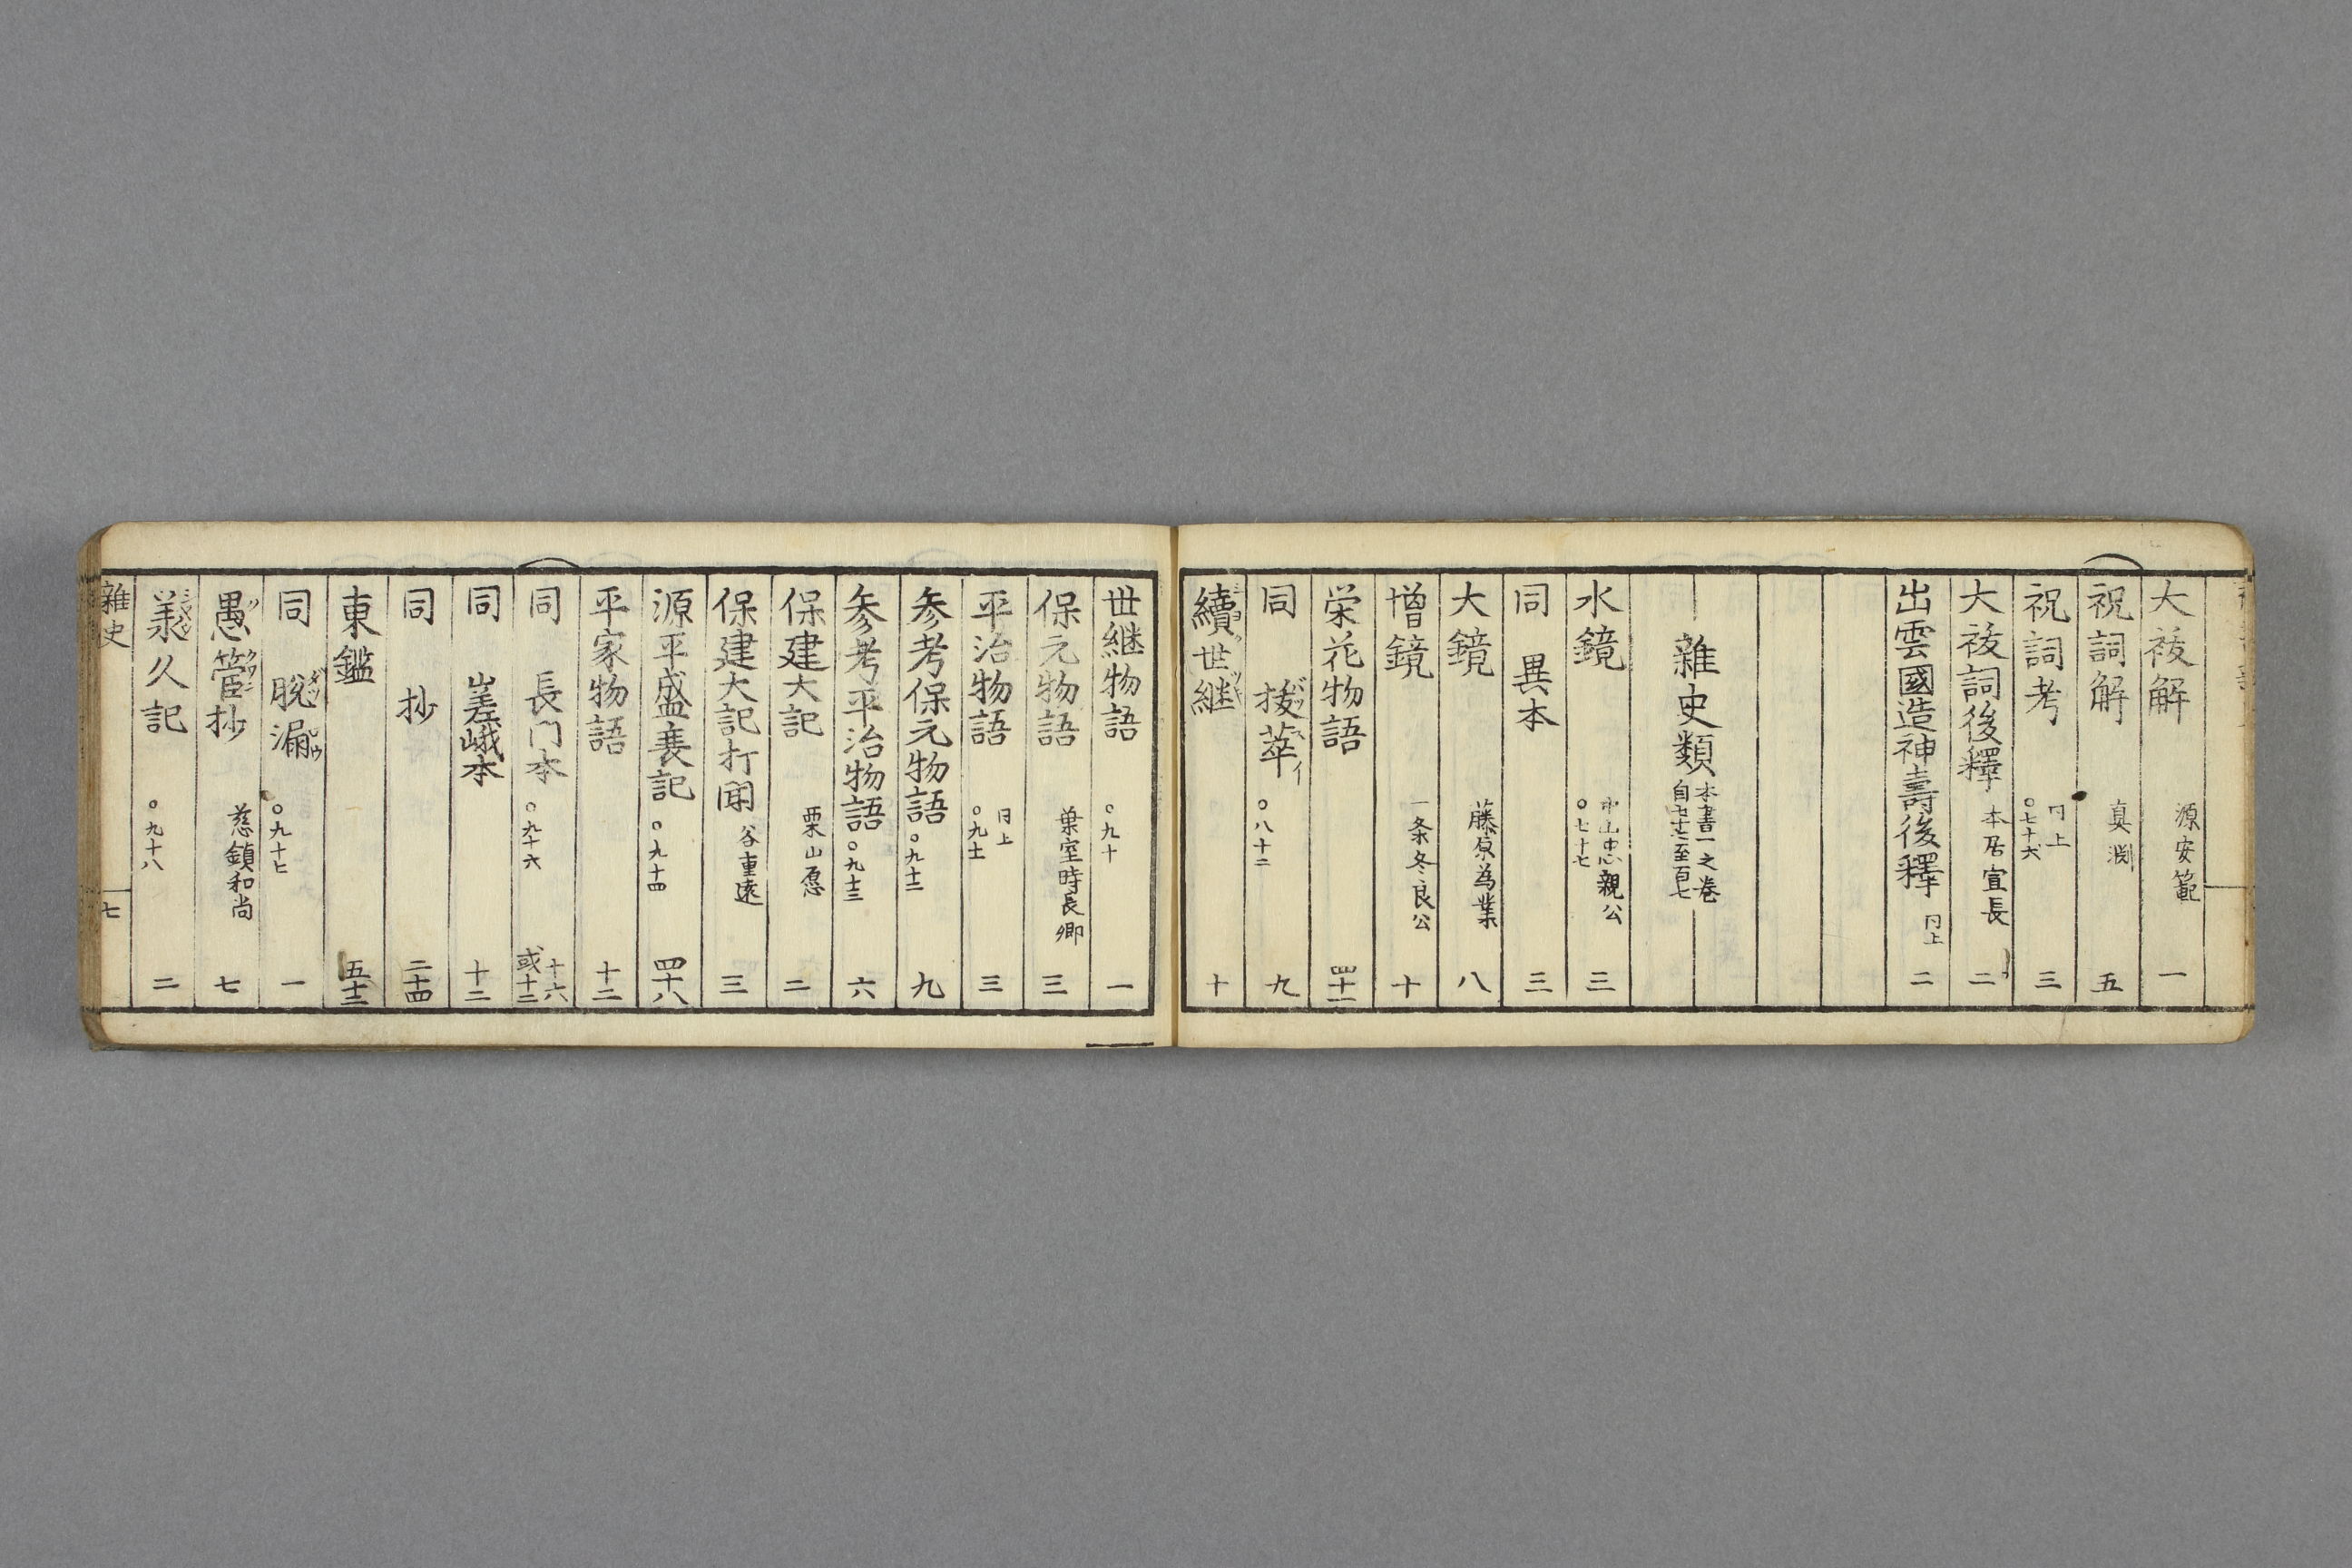 大祓解 源安範 一
祝詞解 真淵 五
祝詞考 同上 ○七十六 三
大祓詞後釋 本居宣長 二
出雲國造神壽後釋 同上 二
雜史類 本書一之巻
水鏡 中山忠親公 ○七十七 三
同 異本 三
大鏡 藤原為業 八
増鏡 一条冬良公 十
栄花物語 四十一
同 抜萃 バツスイ ○八十二 九
續世継 十
世継物語 ○九十 一
保元物語 葉室時長卿 三
平治物語 同上 ○九十一 三
参考保元物語 ○九十二 九
参考平治物語 ○九十三 六
保建大記 栗山愿 二
保建大記打聞 谷重遠 三
源平盛衰記 ○九十四 四十八
平家物語 十二
同 長門本 ○九十六 十六 或十二
同 嵯峨本 十二
同 抄 二十四
東鑑 五十二
同 脱漏 ○九十七 一
愚管抄 慈鎮和尚 七
羕久記 ○九十八 二
雜史 七